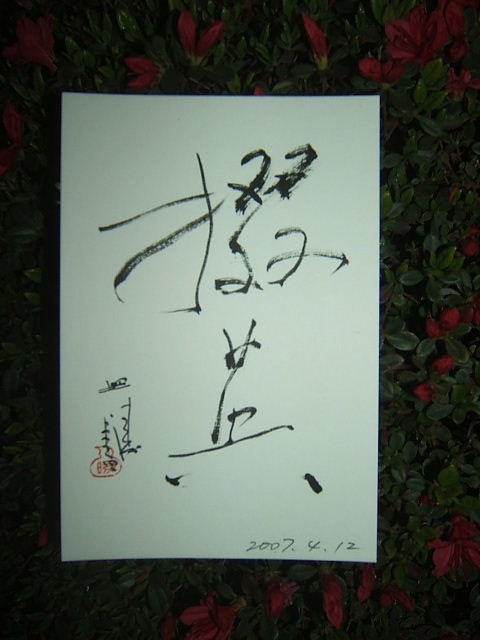 掇英
2007.4.12